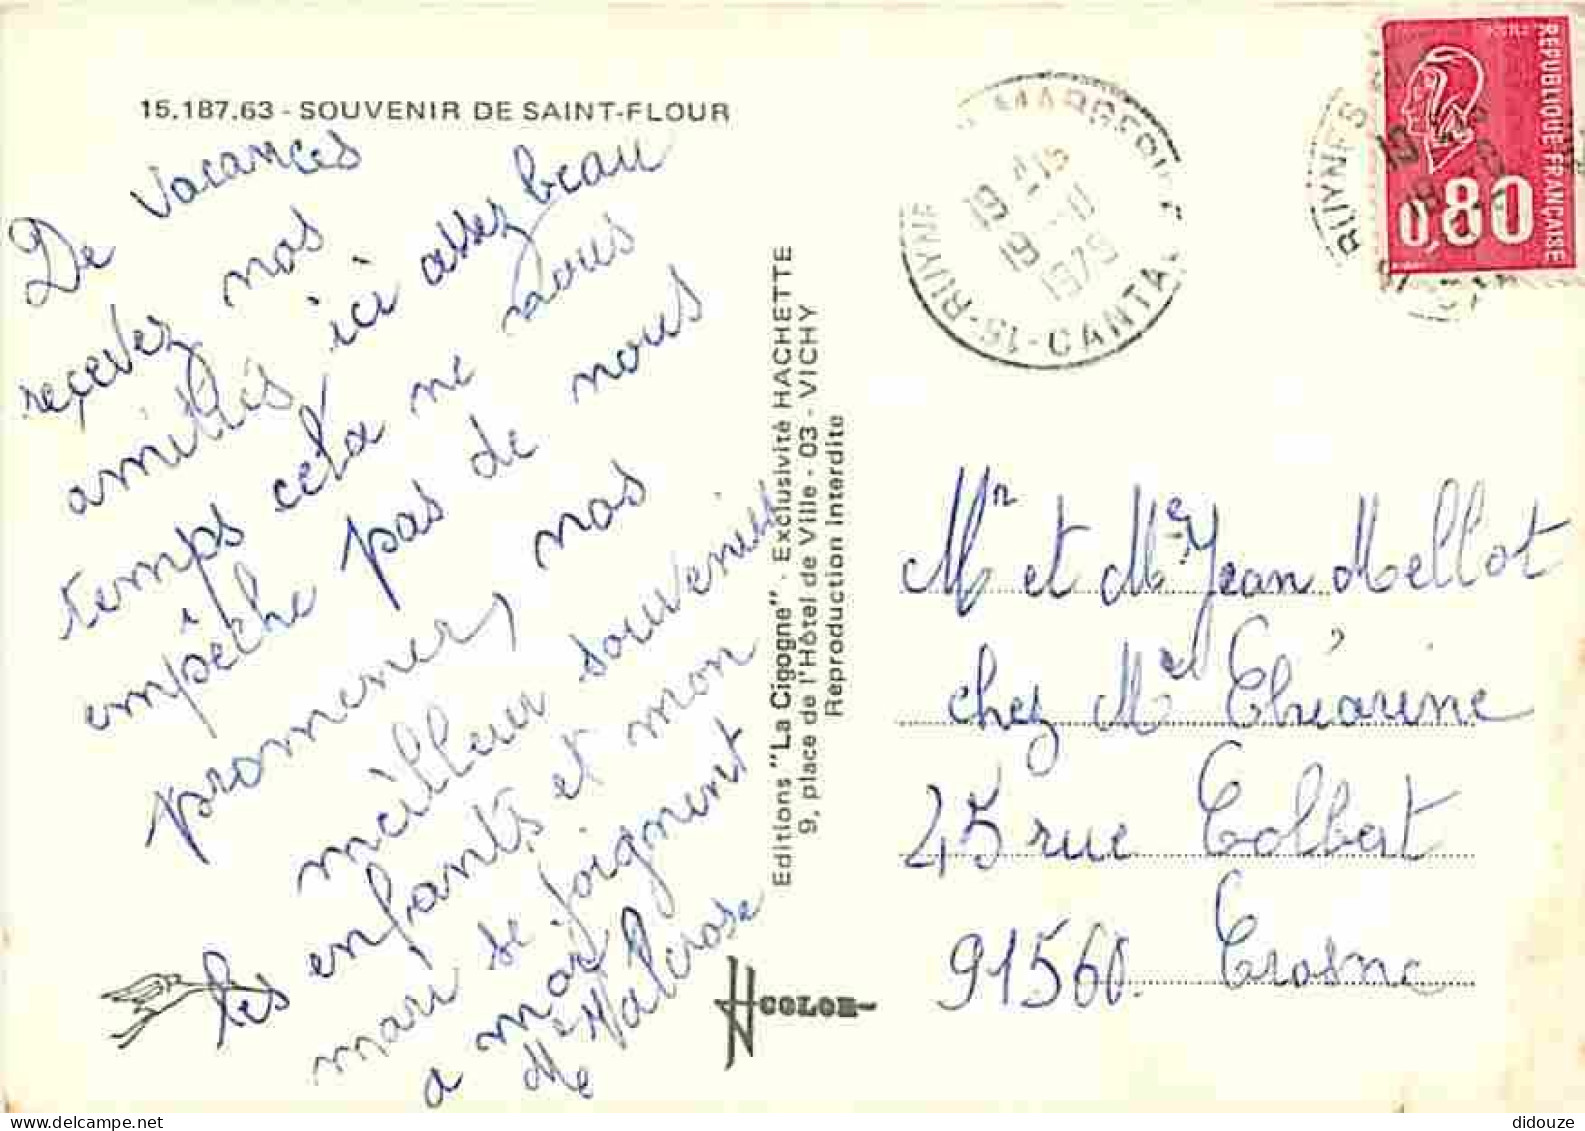 15.187.63 - SOUVENIR DE SAINT-FLOUR
De vacances
recevez nos
amitiés, ici assez beau
temps cela ne nous
empêche pas de nous
promener, nos
meilleur souvenirs
les enfants et mon
mari se joignent
a moi
Me Valcrose
Editions "La Cigogne" - Exclusivité HACHETTE
9, place de l'Hôtel de Ville - 03 - VICHY
Reproduction interdite
COLOR
MARGERIDE
15 - CANTAL
19
1979
REPUBLIQUE FRANÇAISE
0,80
RUYNES
Mr et Me Jean Mellot
chez Me
45 rue Colbert
91560. Crosne
didouze